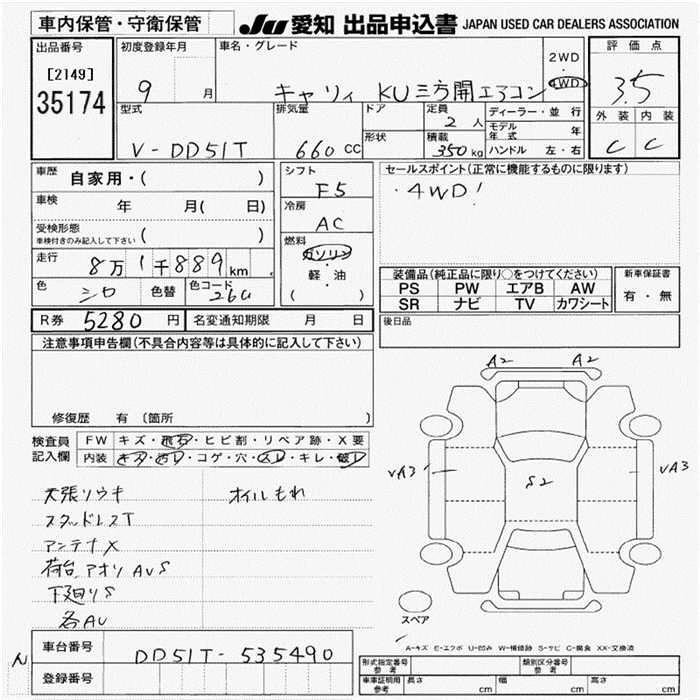 車内保管・守衛保管
JU 愛知 出品申込書 JAPAN USED CAR DEALERS ASSOCIATION
出品番号
[2149]
35174
初度登録年月
9 月
車名・グレード
キャリィ KU三方開エアコン
2WD
4WD
評価点
3.5
外装 内装
C C
型式
V-DD51T
排気量
660 CC
ドア
形状
定員
2 人
積載
350 kg
ディーラー・並行
モデル年式 年
ハンドル 左・右
車歴 自家用・( )
車検 年 月( 日)
受検形態
車検付きのみ記入して下さい ( )
走行 8万1千889km
色 シロ 色替 色コード 26U
シフト
F5
冷房
AC
燃料
ガソリン
・
軽・油
( )
セールスポイント(正常に機能するものに限ります)
・4WD!
装備品(純正品に限り○をつけてください)
PS PW エアB AW
SR ナビ TV カワシート
新車保証書
有・無
R券 5280 円 名変通知期限 月 日
後日品
注意事項申告欄(不具合内容等は具体的に記入して下さい)
修復歴 有 〔箇所 〕
検査員記入欄
FW キズ・飛石・ヒビ割・リペア跡・X要
内装 キズ・汚れ・コゲ・穴・スレ・キレ・破レ
天張リウキ オイルもれ
スタッドレスT
アンテナX
荷台アオリAUS
下廻りS
各AU
A2 A2
UA3 S2 UA3
スペア
A-キズ E-エクボ U-凹み W-補修跡 S-サビ C-腐食 XX-交換済
N
車台番号 DD51T-535490
登録番号
形式指定番号 参考
類別区分番号 参考
車車証明用 参考 長さ cm 幅 cm 高さ cm